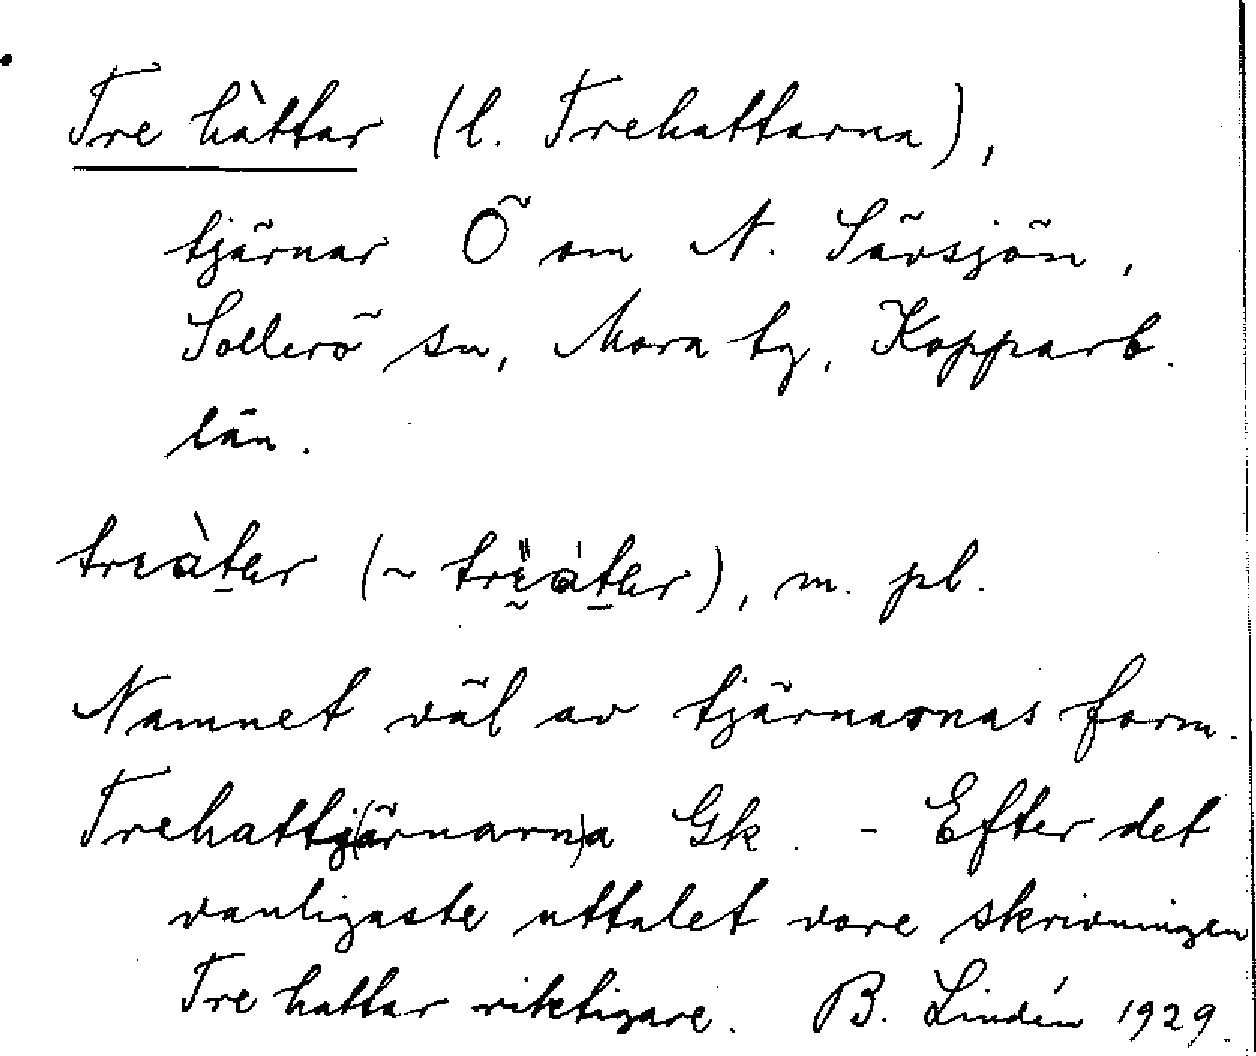 Tre hàttar (l. Trehattarna),
tjärnar Ö om N. Sävsjön,
Sollerö sn, Mora tg, Kopparb.
län.
trıàt̠ar (~ trı̈át̠ar), m. pl.
Namnet väl av tjärnarnas form.
Trehattj(ärnarn)a Gk. - Efter det
vanligaste uttalet vore skrivningen
Tre hattar riktigare. B. Lindén 1929.